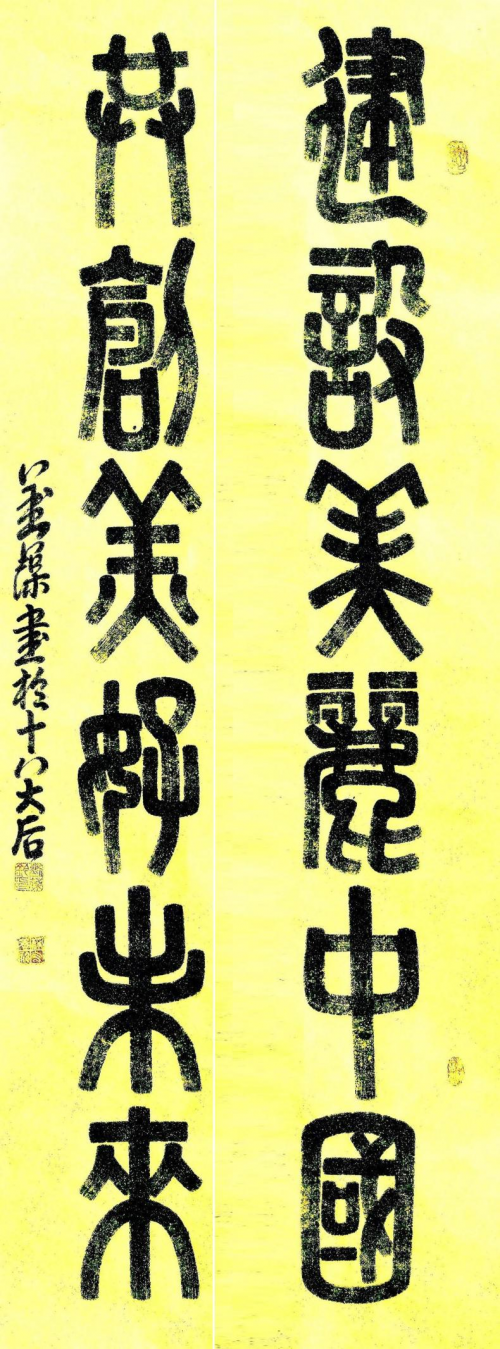 建設美麗中國
共創美好未來
書於十八大后